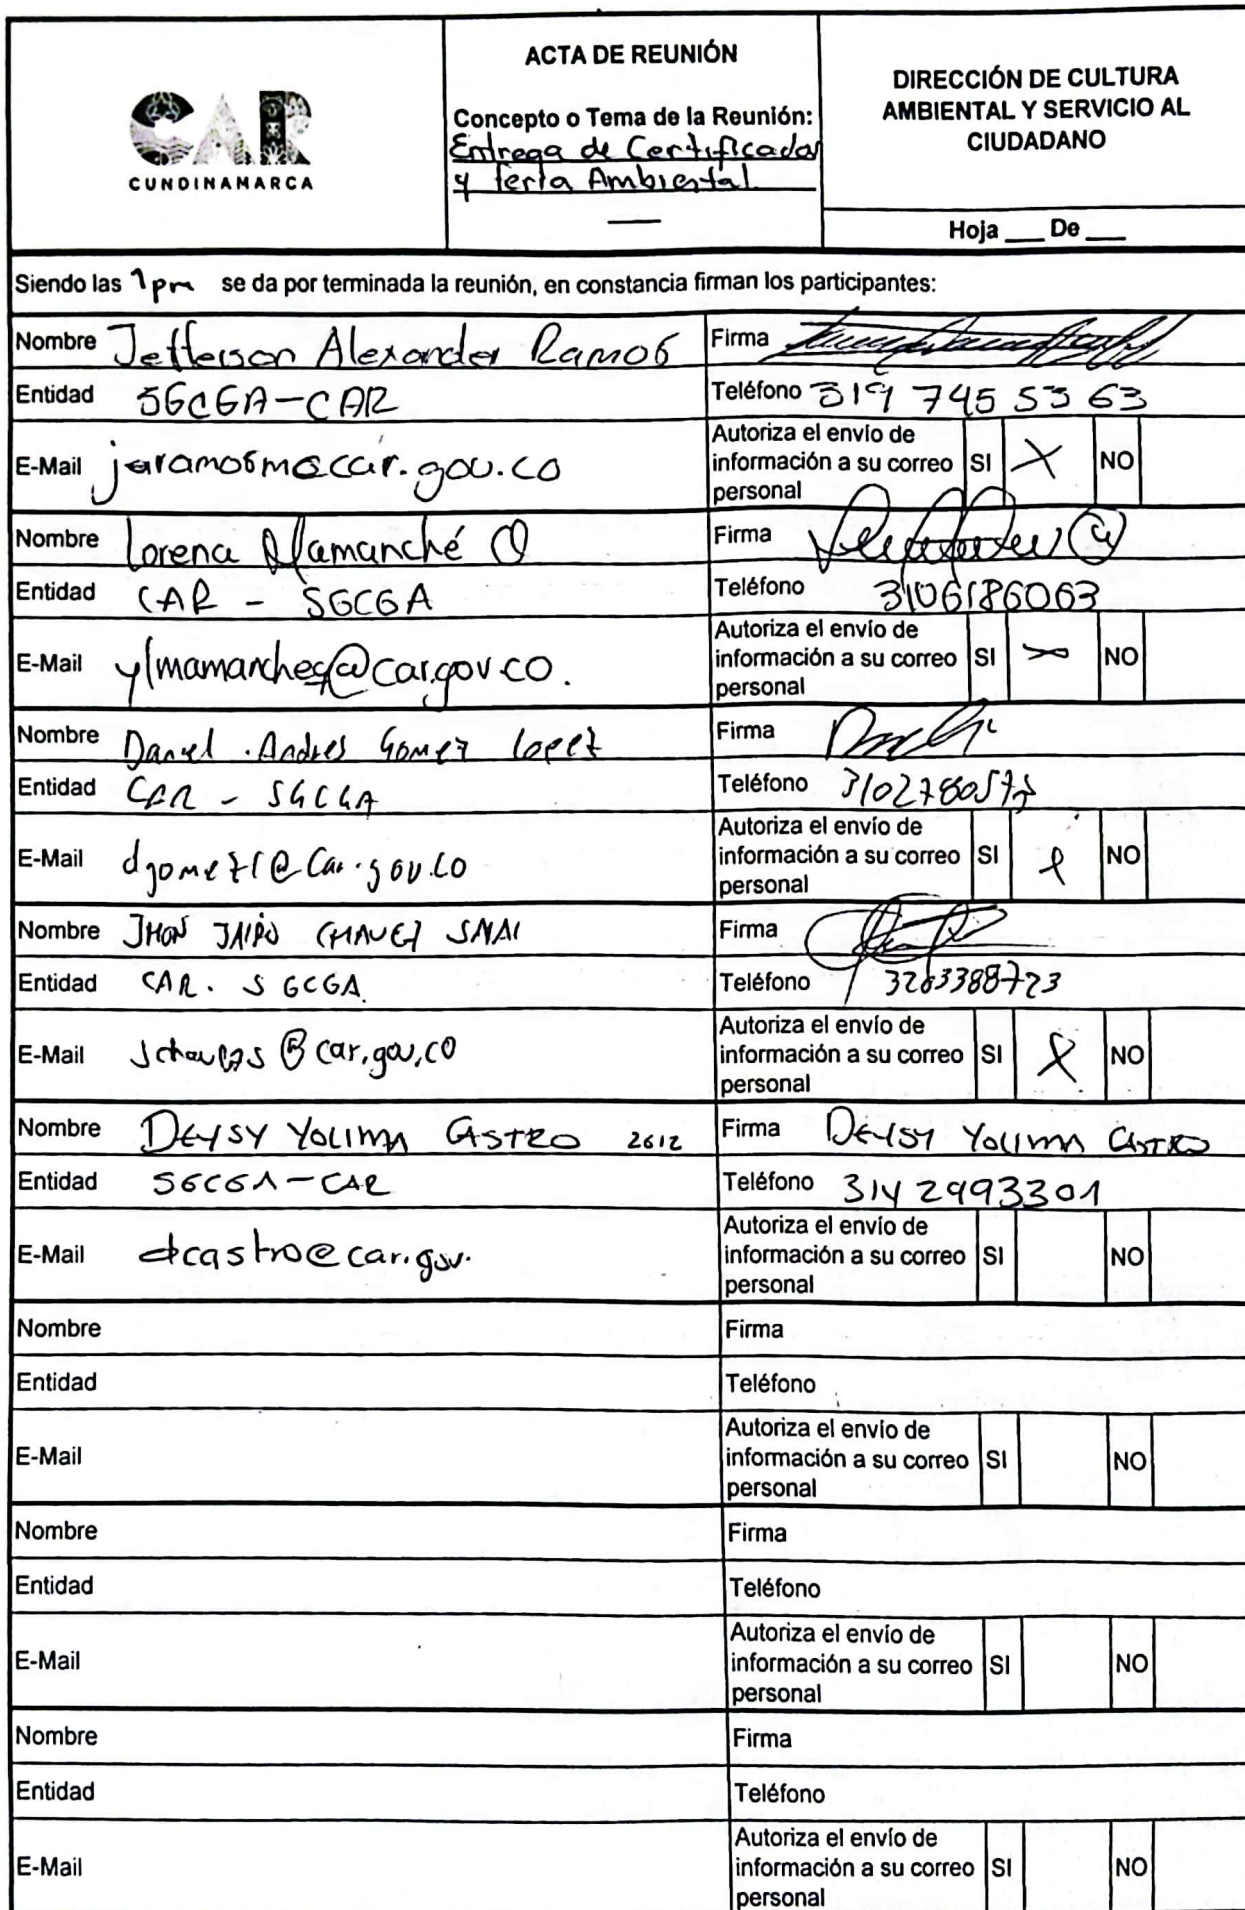 CAR
CUNDINAMARCA
ACTA DE REUNIÓN
Concepto o Tema de la Reunión:
Entrega de Certificados
y feria Ambiental
DIRECCIÓN DE CULTURA
AMBIENTAL Y SERVICIO AL
CIUDADANO
Hoja ___ De ___
Siendo las 1pm se da por terminada la reunión, en constancia firman los participantes:
Nombre Jefferson Alexander Ramos Firma
Entidad SGCGA-CAR Teléfono 319 745 53 63
E-Mail jaramosm@car.gov.co
Autoriza el envío de
información a su correo SI X NO
personal
Nombre Lorena Mamanché Q Firma
Entidad CAR - SGCGA Teléfono 3106186063
E-Mail ylmamancheq@car.gov.co.
Autoriza el envío de
información a su correo SI X NO
personal
Nombre Daniel Andres Gomez Lopez Firma
Entidad CAR - SGCGA Teléfono
E-Mail dgomezl@car.gov.co
Autoriza el envío de
información a su correo SI X NO
personal
Nombre JHON JAIRO CHAVEZ Firma
Entidad CAR. SGCGA Teléfono 3263388723
E-Mail
Autoriza el envío de
información a su correo SI X NO
personal
Nombre DEYSY YOLIMA CASTRO 2612 Firma DEYSY YOLIMA CASTRO
Entidad SGCGA-CAR Teléfono 314 2993301
E-Mail dcastro@car.gov.
Autoriza el envío de
información a su correo SI NO
personal
Nombre Firma
Entidad Teléfono
E-Mail
Autoriza el envío de
información a su correo SI NO
personal
Nombre Firma
Entidad Teléfono
E-Mail
Autoriza el envío de
información a su correo SI NO
personal
Nombre Firma
Entidad Teléfono
E-Mail
Autoriza el envío de
información a su correo SI NO
personal